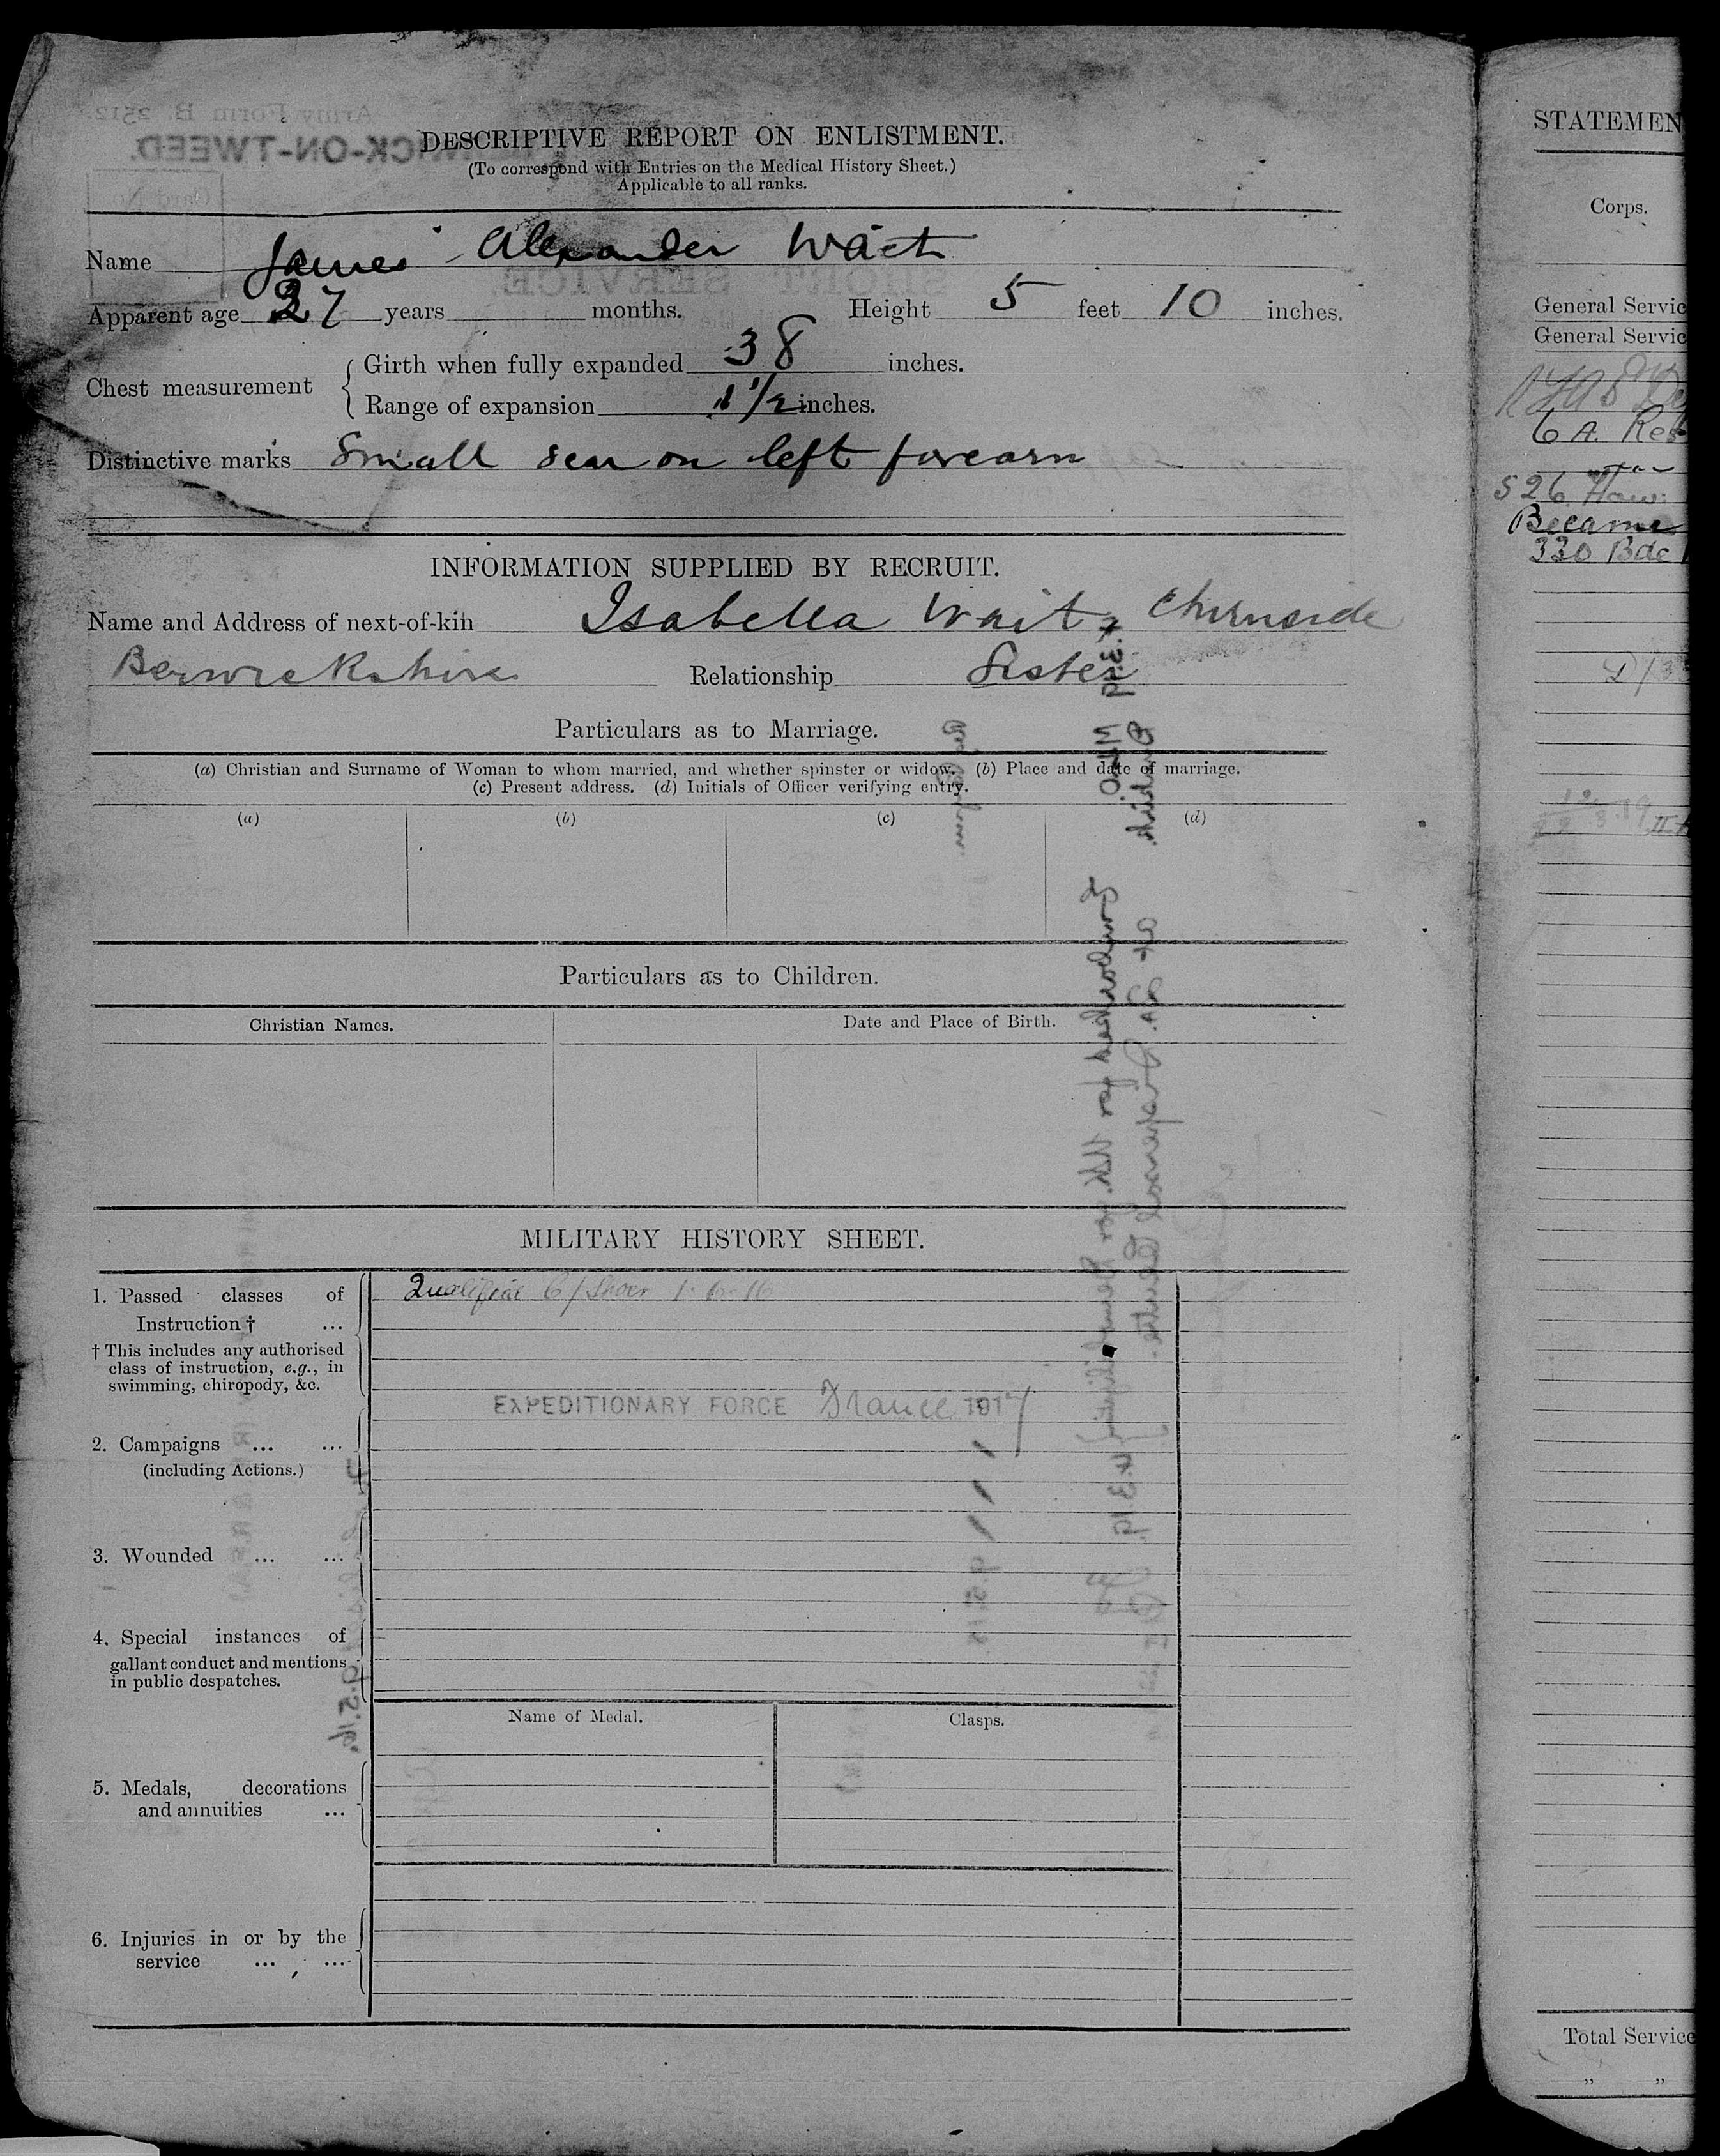 DESCRIPTIVE REPORT ON ENLISTMENT.
(To correspond with Entries on the Medical History Sheet.)
Applicable to all ranks.
Name James Alexander Wait
Apparent age 27 years months. Height 5 feet 10 inches.
Chest measurement { Girth when fully expanded 38 inches.
Range of expansion 1 1/2 inches.
Distinctive marks Small scar on left forearm
INFORMATION SUPPLIED BY RECRUIT.
Name and Address of next-of-kin Isabella Wait, Chirnside
Berwickshire Relationship Sister
Particulars as to Marriage.
(a) Christian and Surname of Woman to whom married, and whether spinster or widow. (b) Place and date of marriage.
(c) Present address. (d) Initials of Officer verifying entry.
(a) (b) (c) (d)
Particulars as to Children.
Christian Names. Date and Place of Birth.
MILITARY HISTORY SHEET.
1. Passed classes of
Instruction † ...
† This includes any authorised
class of instruction, e.g., in
swimming, chiropody, &c.
Qualified C/Shoer 1.6.16
EXPEDITIONARY FORCE France 1917
2. Campaigns ... ...
(including Actions.)
3. Wounded ... ...
4. Special instances of
gallant conduct and mentions
in public despatches.
Name of Medal. Clasps.
5. Medals, decorations
and annuities ...
6. Injuries in or by the
service ... ...
STATEMEN
Corps.
General Servic
General Servic
6 A. Res
526 How:
Became
330 Bde
Total Service
" "